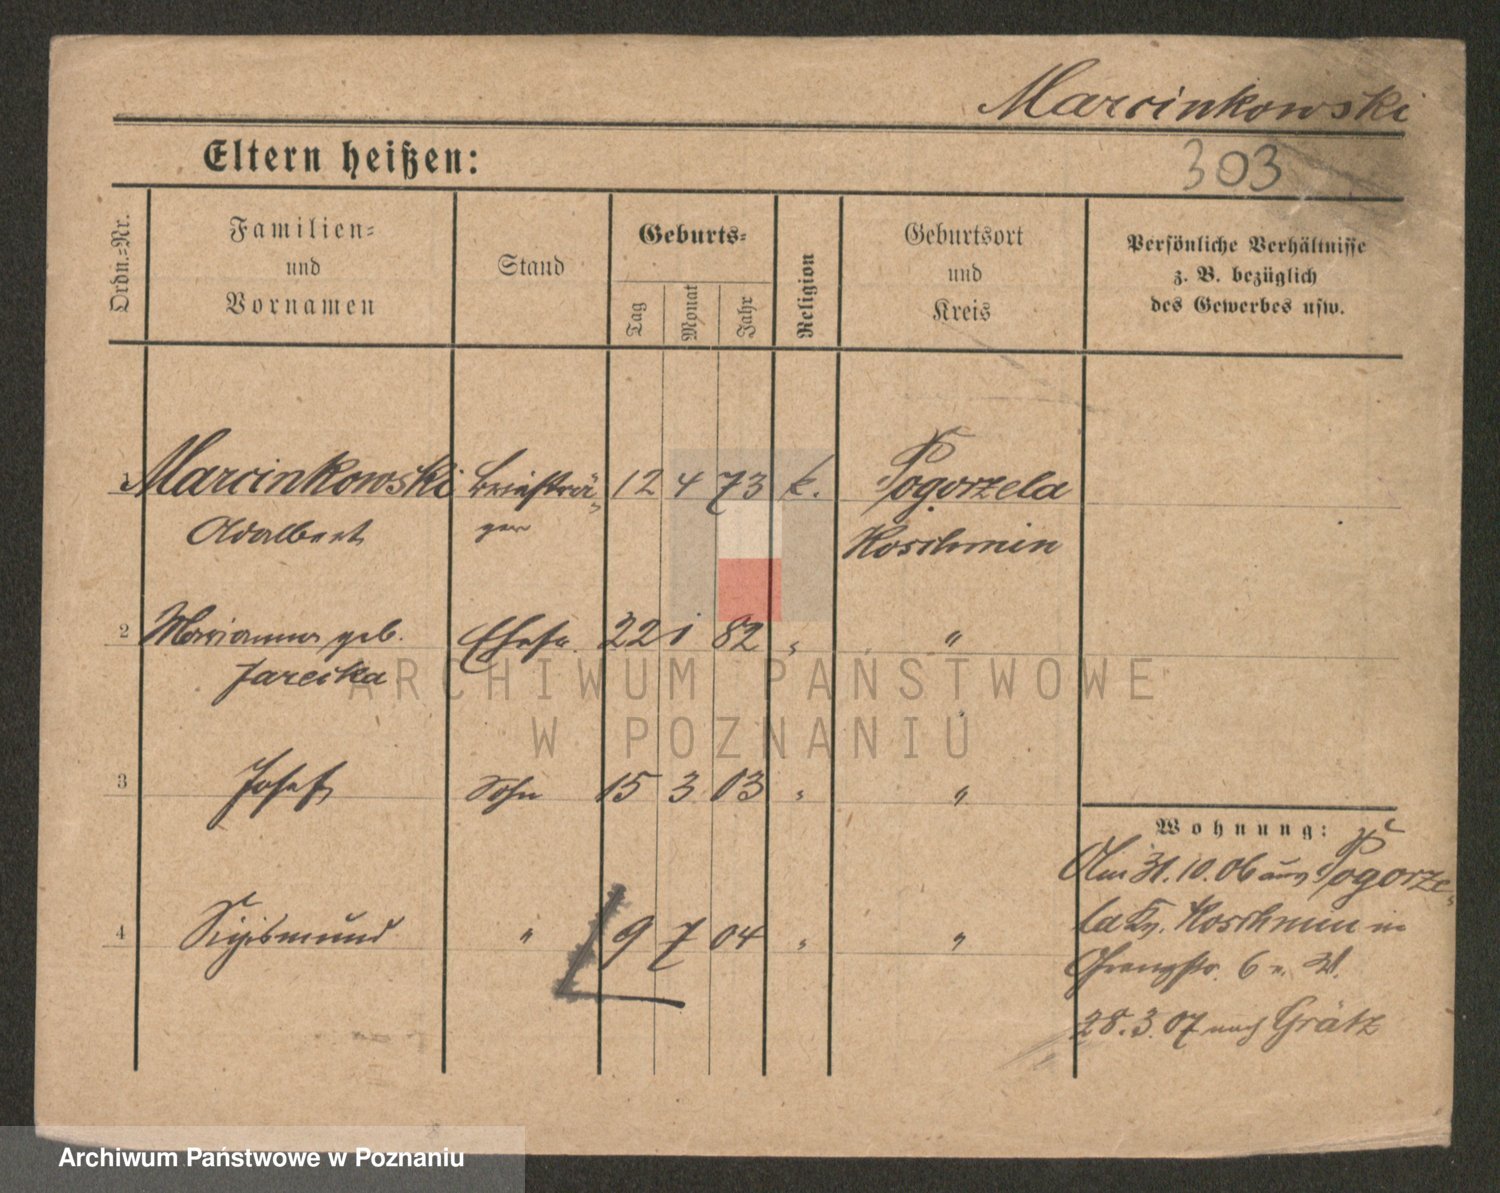 Marcinkowski
Eltern heißen:
303
Ordn.-Nr.
Familien-
und
Vornamen
Stand
Geburts-
Tag
Monat
Jahr
Religion
Geburtsort
und
Kreis
Persönliche Verhältnisse
z. B. bezüglich
des Gewerbes usw.
1 Marcinkowski Briefträ- 12 4 73 k. Pogorzela
Adalbert ger Koschmin
2 Marianna geb. Ehefr. 22 1 82 " "
Jarcika
3 Josef Sohn 15 3 03 " "
4 Sigismund " 9 7 04 " "
Wohnung:
Am 31.10.06 aus Pogorze-
la Kr. Koschmin in
6 u. W.
28.3.07 nach Grätz
ARCHIWUM PAŃSTWOWE
W POZNANIU
Archiwum Państwowe w Poznaniu